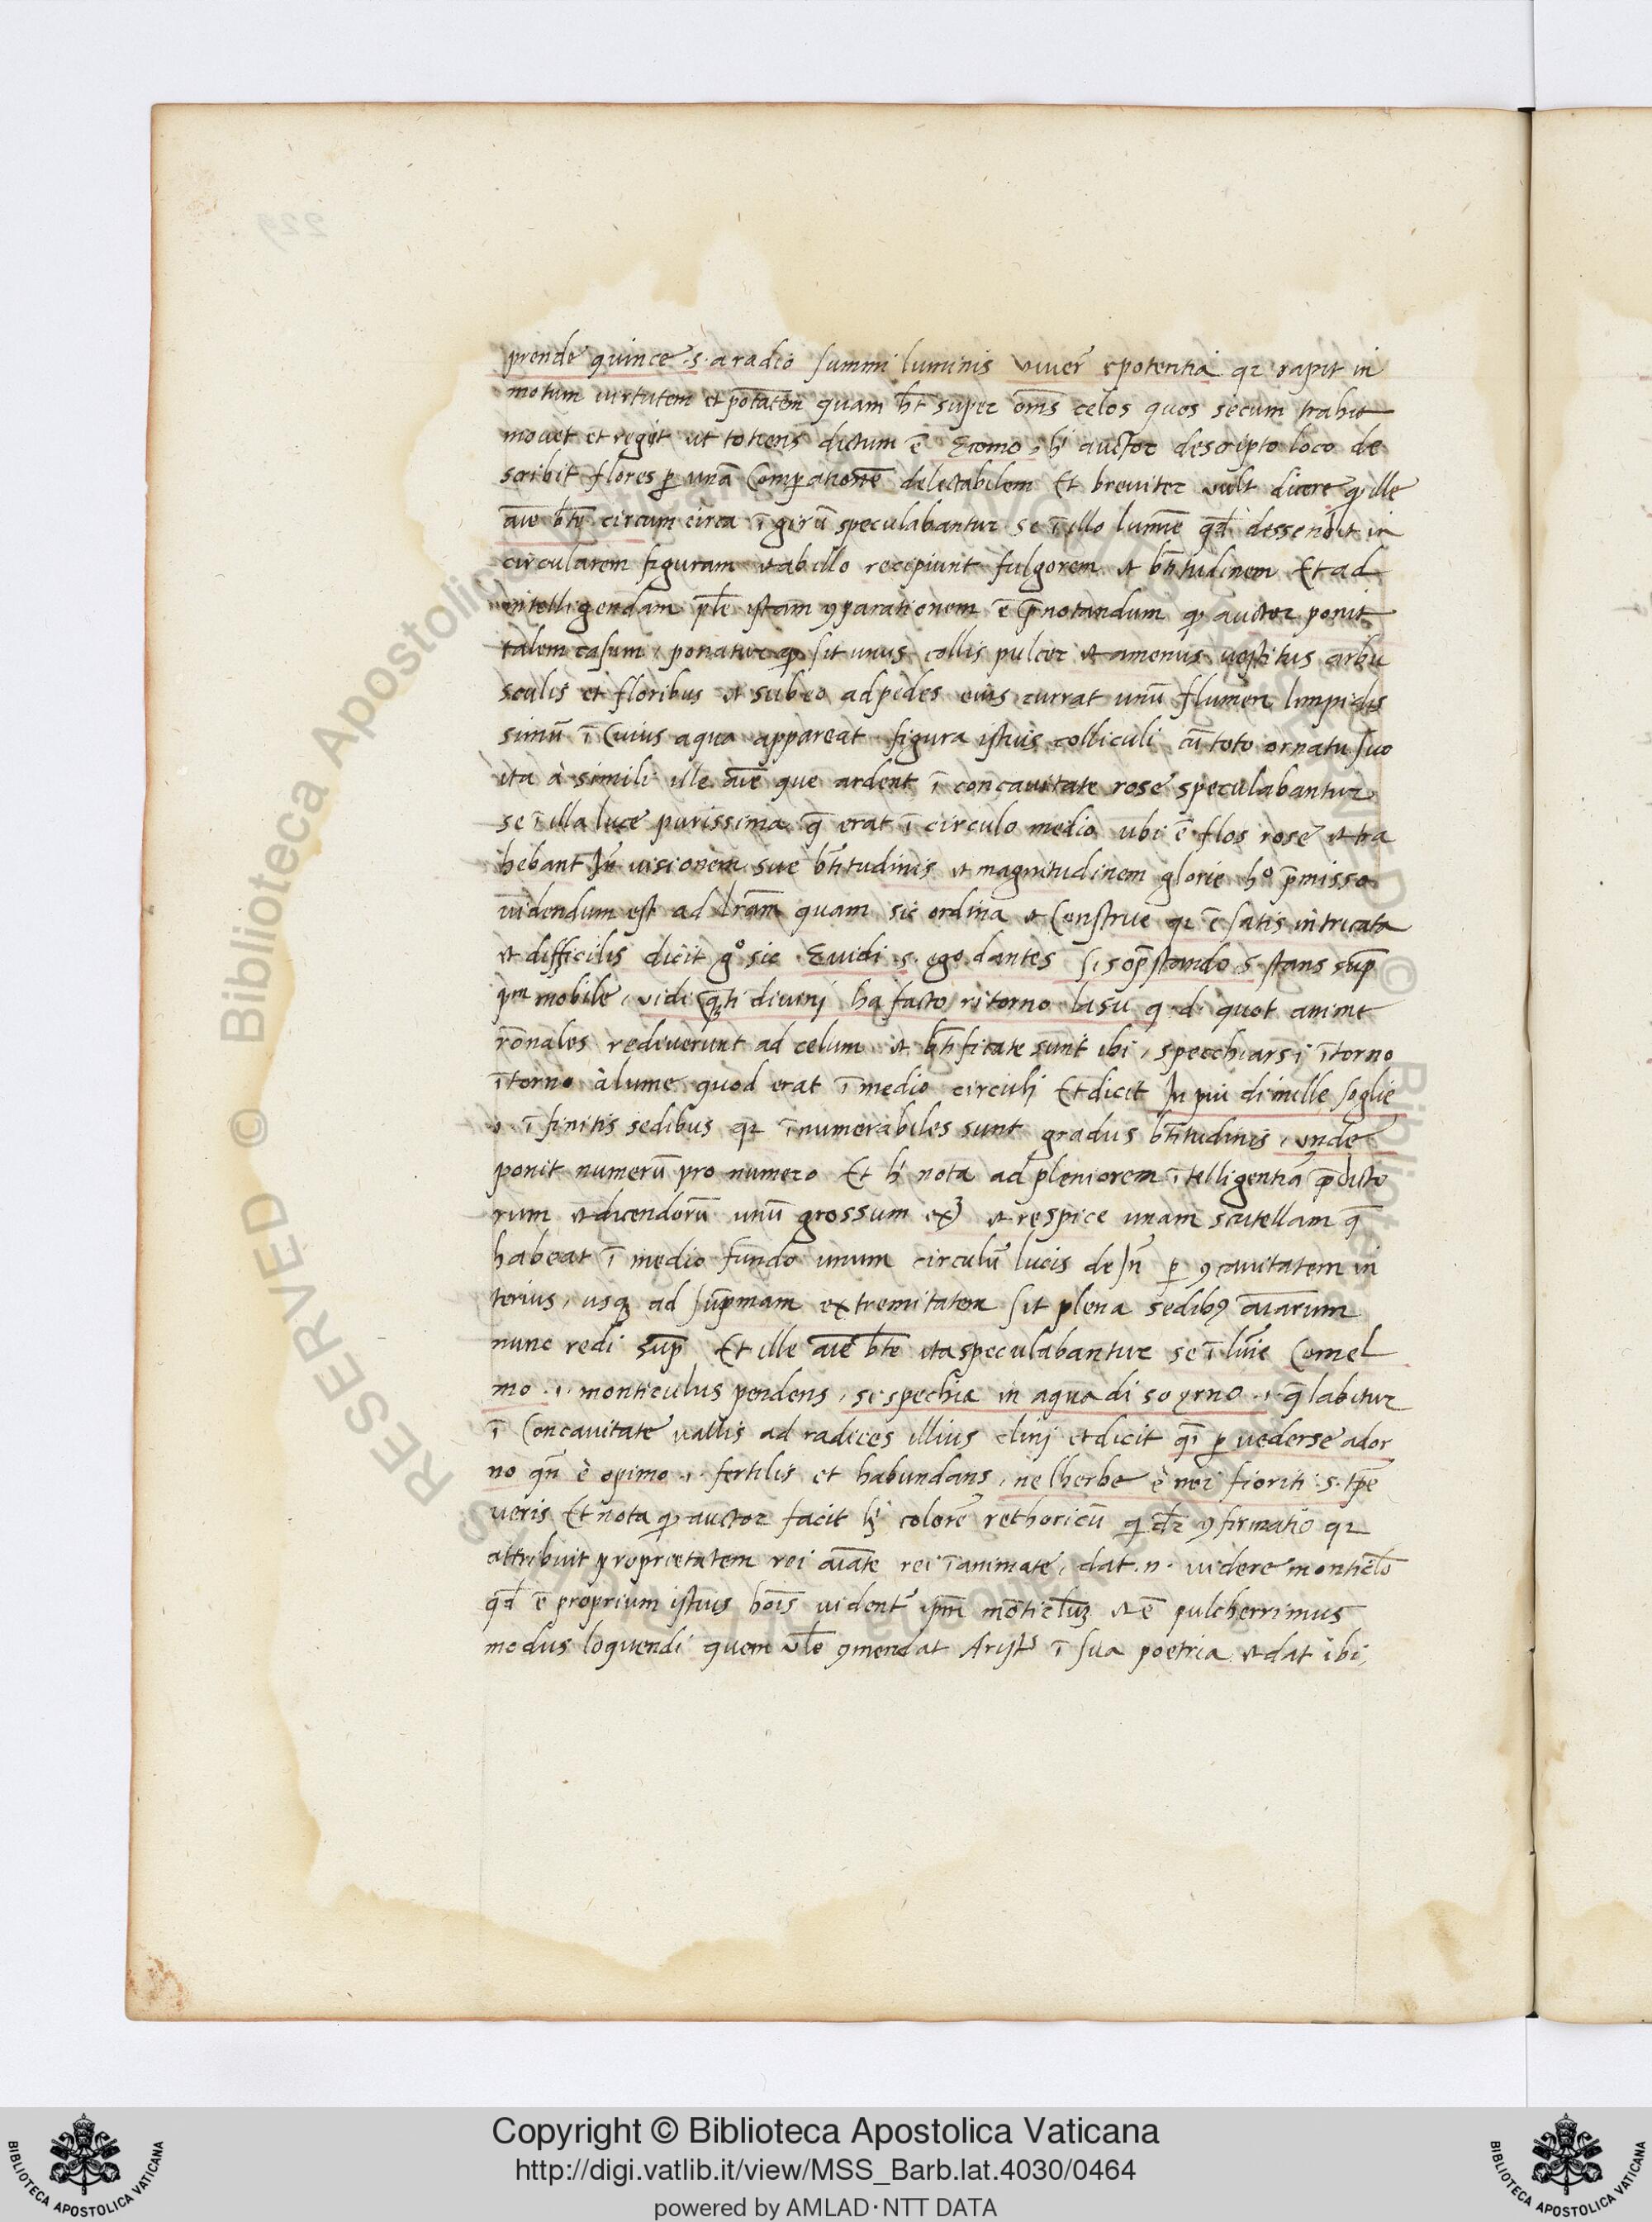 prende quince .s. a radio summi luminis viver e potentia qz rapit in
motum virtutem et potatem quam ht super oms celos quos secum trahit
movet et regit ut totiens dictum ē E como, h auctor descripto loco de
scribit flores p unā Comparationē delectabilem Et breviter vult dicere qp ille
aīe btē circum circa ī girū speculabantur se ī illo lumīe qd dessendit in
circularem figuram et ab illo recipiunt fulgorem et btītudinem Et ad
intelligendam plē istam 9parationem ē p̄notandum qp auctor ponit
talem casum, ponatur qp sit unus collis pulcer et amenus vestitus arbu
sculis et floribus et sub eo ad pedes eius currat unū flumen limpidis
simū ī Cuius aqua appareat figura istius colliculi cū toto ornatu suo
ita à simili ille aīe que ardent ī concavitate rose speculabantur
se ī illa luce purissima q̄ erat ī circulo medio ubi ē flos rose et tra
hebant In visionem sue btītudinis et magnitudinem glorie ho p̄misso
videndum est ad lr̄am quam sic ordina et Construe qz ē satis intricata
et difficilis dicit go sic E vidi .s. ego dantes si sop̄stando .s. stans sup̄
pm mobile, vidi q̄ti divini ha facto ritorno lasu q. d. quot anime
rōnales rediverunt ad celum et btīficate sunt ibi, specchiarsi ītorno
ītorno à lume quod erat ī medio circuli Et dicit In più di mille soglie
.i. ī finitis sedibus qz īnumerabiles sunt gradus btītudinis, unde
ponit numerū pro numero Et h nota ad pleniorem ītelligentiā p̄dicto
rum et dicendorū unū grossum ex3 et respice unam scutellam q̄
habeat ī medio fundo unum circulū lucis deIn p 9cavitatem in
terius, usq3 ad sup̄mam extremitatem sit plena sedib9 aīarum
nunc redi sup̄ Et ille aīe btē ita speculabantur se ī lūīe Comel
mo .i. monticulus pendens, se spechia in aqua di so yrno .i. q̄ labitur
ī Concavitate vallis ad radices illius clini et dicit q̄ī p vederse ador
no qn̄ è opimo .i. fertilis et habundans, ne lherbe è nei fioriti .s. tp̄e
veris Et nota qp auctor facit h colorē rethoricū q dr 9firmatio qz
attribuit proprietatem rei aīate rei īanimate, dat .n. videre monticlo
qd ē proprium istius hoīs vident ipm mōticluz et ē pulcherrimus
modus loquendi quem vlē 9mendat Arists ī sua poetria et dat ibi,
229
Copyright © Biblioteca Apostolica Vaticana
http://digi.vatlib.it/view/MSS_Barb.lat.4030/0464
powered by AMLAD·NTT DATA
BIBLIOTECA APOSTOLICA VATICANA
BIBLIOTECA APOSTOLICA VATICANA